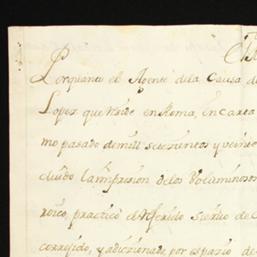 Porquanto el Agente dela Causa de
Lopez que reside en Roma, en carta
mo pasado de mill setesientos y veinte
cluido la impresion delos Voluminosos
roico, practicó el referido siervo de
corregido, y adicionado, por espacio de